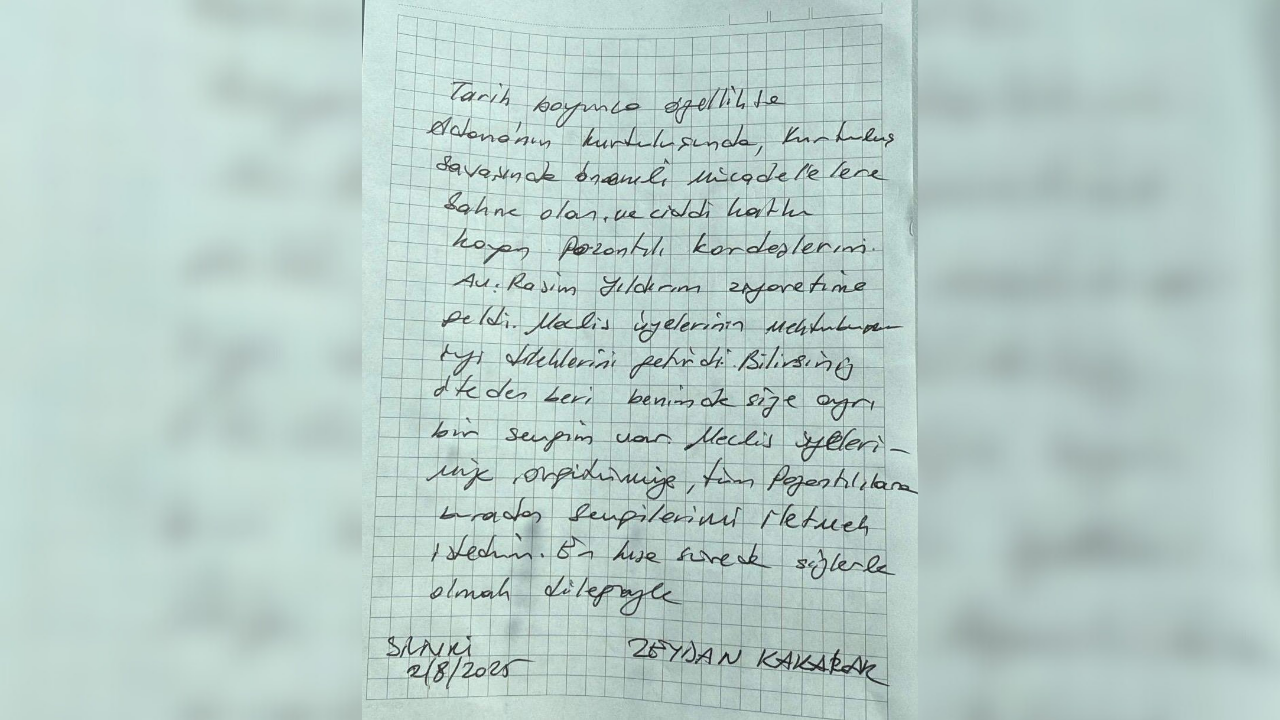 Tarih boyunca özellikle
Adana'nın kurtuluşunda, Kurtuluş
Savaşında önemli mücadelelere
Sahne olan, ve ciddi katkı
koyan Pozantılı kardeşlerim.
Av. Rasim Yıldırım ziyaretime
geldi. Meclis üyelerinin
iyi dileklerini getirdi. Bilirsiniz
öteden beri benimde size ayrı
bir sevgim var. Meclis üyeleri-
mize, örgütümüze, tüm Pozantılılara
buradan sevgilerimi iletmek
istedim. En kısa sürede sizlerle
olmak dileğiyle
SİLİVRİ
2/8/2025
ZEYDAN KARALAR